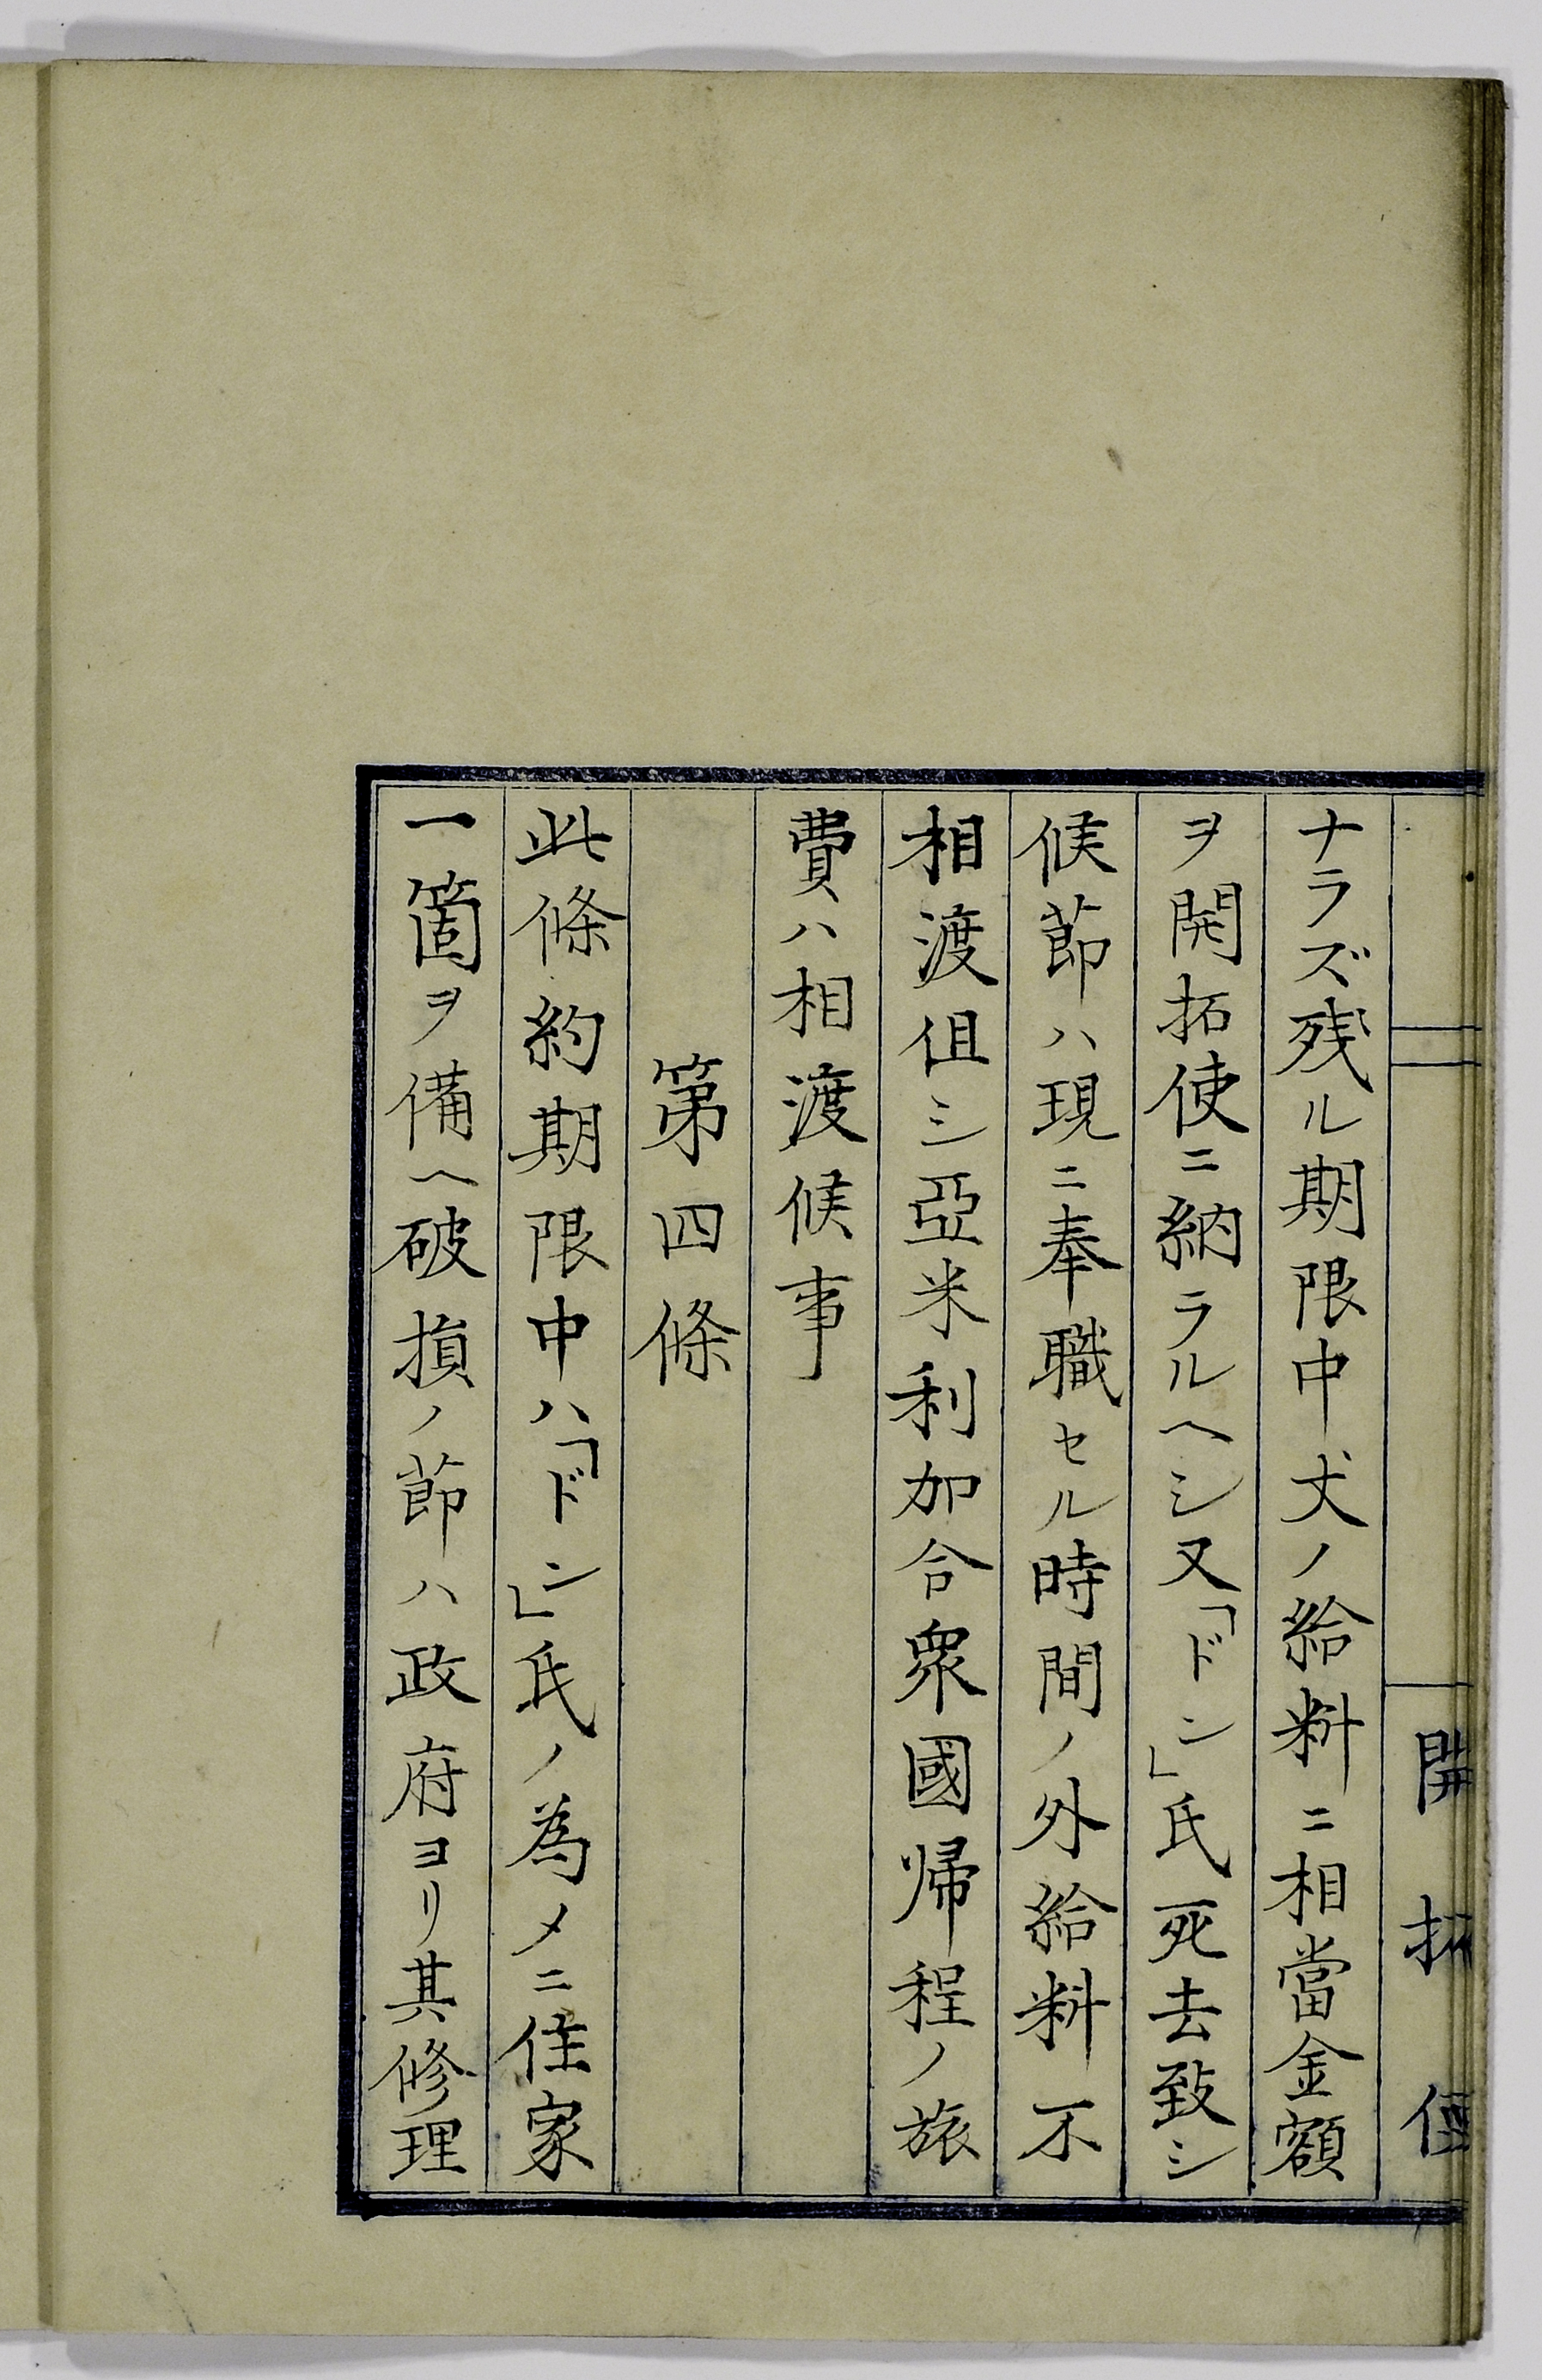 ナラズ残ル期限中丈ノ給料ニ相當金額
ヲ開拓使ニ納ラルヘシ又「ドン」氏死去致シ
候節ハ現ニ奉職セル時間ノ外給料不
相渡伹シ亞米利加合衆國帰程ノ旅
費ハ相渡候事
第四條
此條約期限中ハ「ドン」氏ノ為メニ住家
一箇ヲ備ヘ破損ノ節ハ政府ヨリ其修理
開拓使